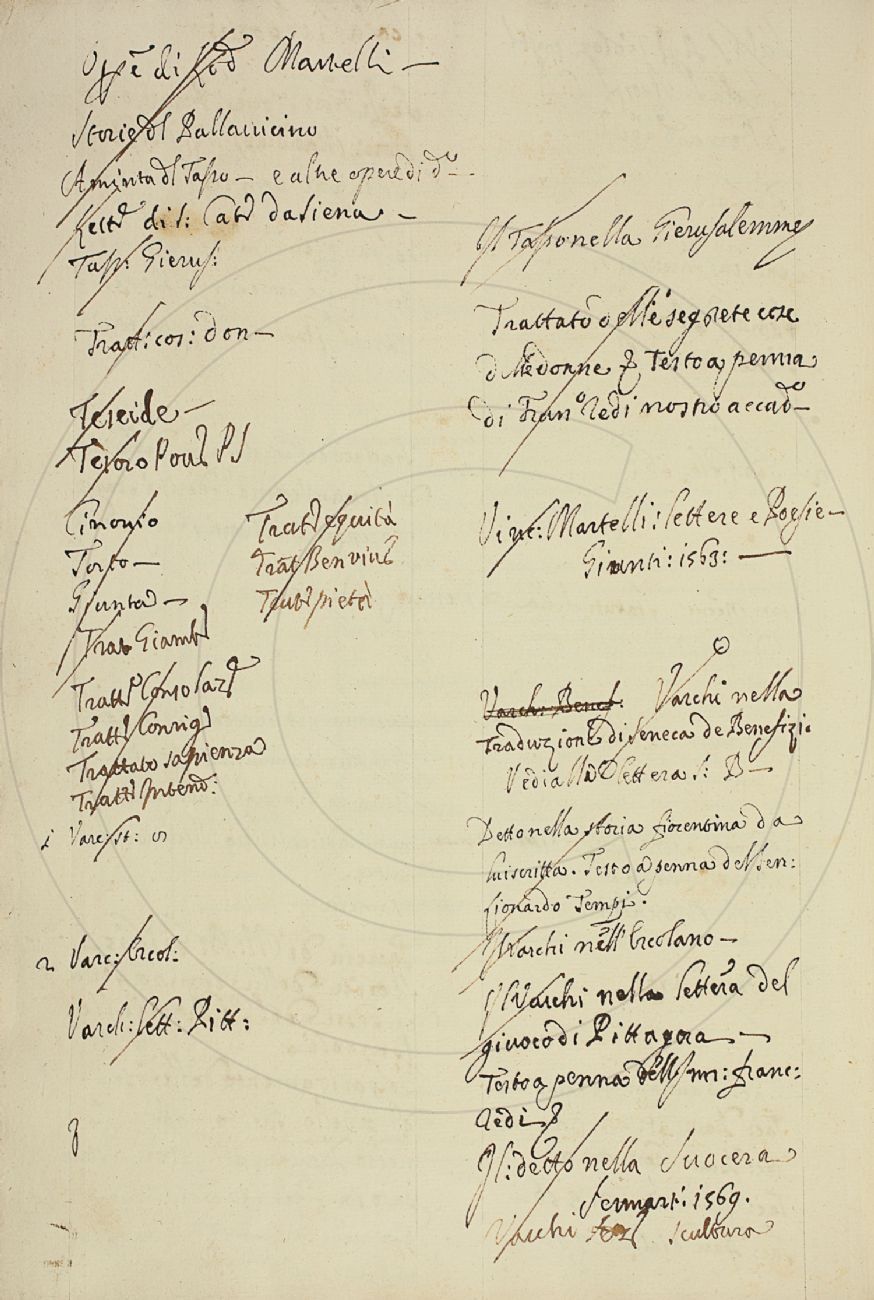 Opē di Lod Martelli —
Storie dl Pallauicino
Aminta dl Tasso — e altre opere di d° —
Lett di s: Cat da Siena —
Tass: Gierus:
Tratt: cos: don —
Teseide —
Tesoro Pou PS
Cinonio
Torto —
Giunta —
Trat Giamb
Tratt Consolaz
Tratt Consig
Trattato sapienza
Tratt Intend:
Trat equità
Trat Ben viu
Trat pietà
1 Varc: st:
2 Varc: Ercol:
Varch: Lett: Pitt:
3
Il Tasso nella Gierusalemme
Trattato delle segrete cose
delle donne Testo a penna
di Fran° Redi nostro accad° —
Vinc: Martelli: Lettere e Poesie —
Giunti: 1563: —
Varch: Benef: Varchi nella
Traduzione di Seneca de Benefizi:
Vedi alla lettera s: B —
Detto nella storia fiorentina da
lui scritta. Testo a penna del Sen:
Lionardo Tempi.
Il Varchi nell' Ercolano —
Il Varchi nella lettera del
giuoco di Pittagora —
Testo a penna dell franc:
Redi
Il: detto nella Suocera
Sermart: 1569.
Varchi Lez scultura